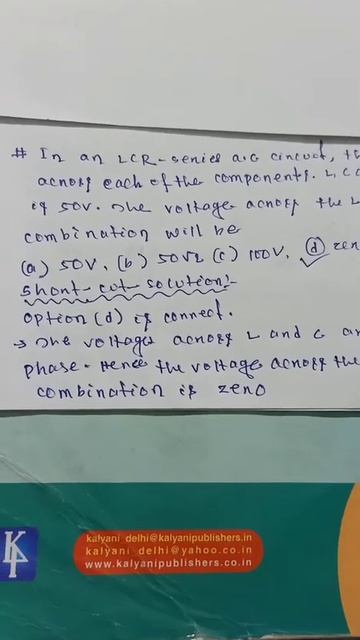 # In an LCR-series a.c circuit, th
across each of the components. L, C
is 50V. The voltage across the L
combination will be
(a) 50V, (b) 50√2 (c) 100V, (d) zer
Short-cut-solution:-
option (d) is correct.
→ The voltages across L and C ar
phase. Hence the voltage across the
combination is zero
kalyani_delhi@kalyanipublishers.in
kalyani_delhi@yahoo.co.in
www.kalyanipublishers.co.in